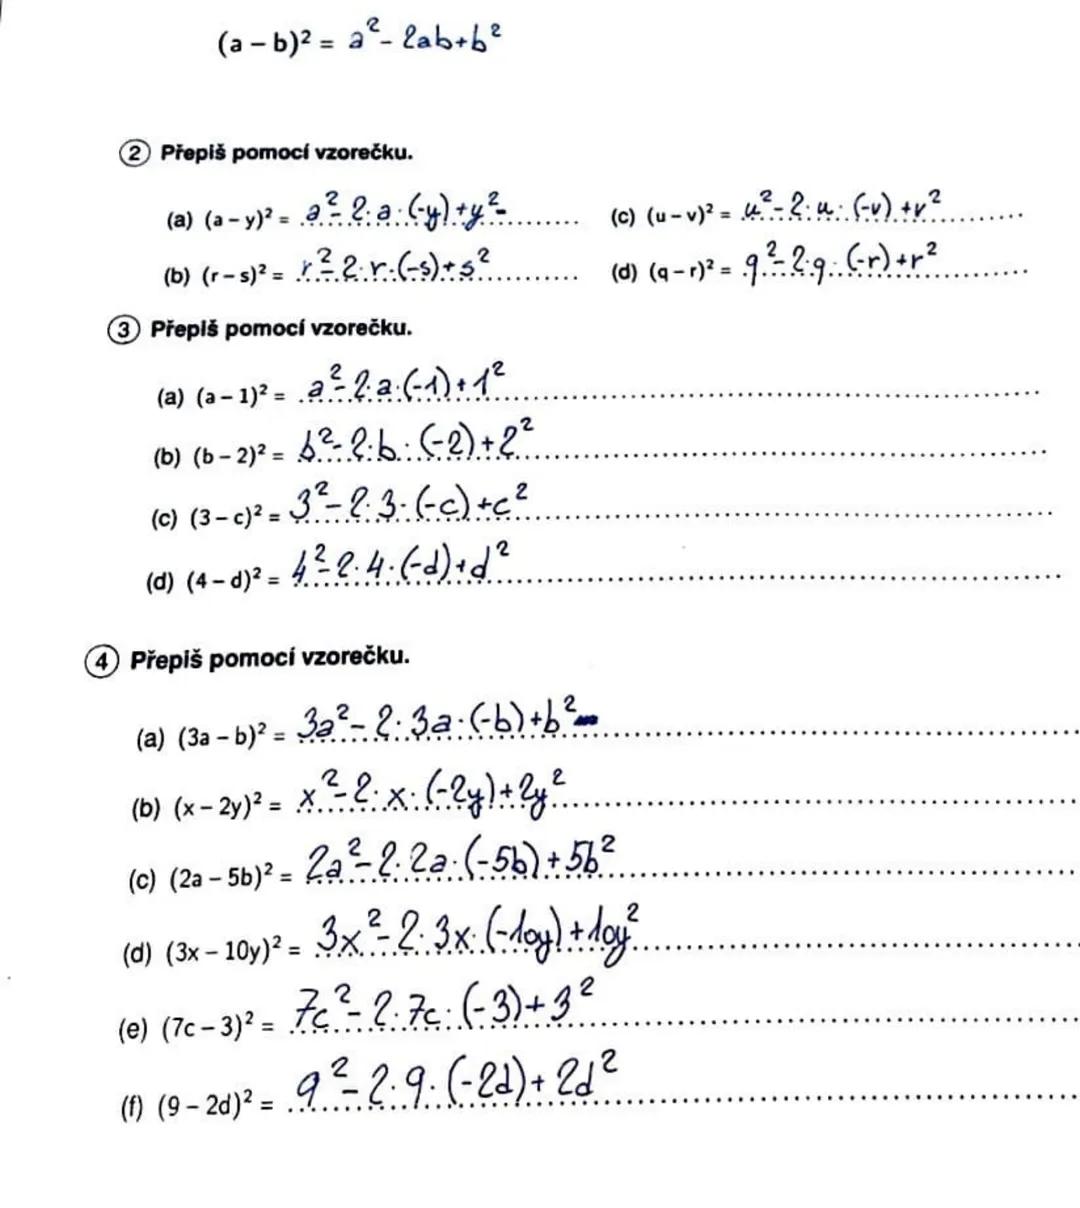 (a – b)² = a² - 2ab+b²
② Přepiš pomocí vzorečku.
(a) (a – y)² = a² - 2·a·(-y)+y² (c) (u – v)² = u² - 2·u·(-v)+v²
(b) (r – s)² = r² - 2·r·(-s)+s² (d) (q – r)² = q² - 2·q·(-r)+r²
③ Přepiš pomocí vzorečku.
(a) (a – 1)² = a² - 2·a·(-1)+1²
(b) (b – 2)² = b² - 2·b·(-2)+2²
(c) (3 – c)² = 3² - 2·3·(-c)+c²
(d) (4 – d)² = 4² - 2·4·(-d)+d²
④ Přepiš pomocí vzorečku.
(a) (3a – b)² = 3a² - 2·3a·(-b)+b²
(b) (x – 2y)² = x² - 2·x·(-2y)+2y²
(c) (2a – 5b)² = 2a² - 2·2a·(-5b)+5b²
(d) (3x – 10y)² = 3x² - 2·3x·(-10y)+10y²
(e) (7c – 3)² = 7c² - 2·7c·(-3)+3²
(f) (9 – 2d)² = 9² - 2·9·(-2d)+2d²